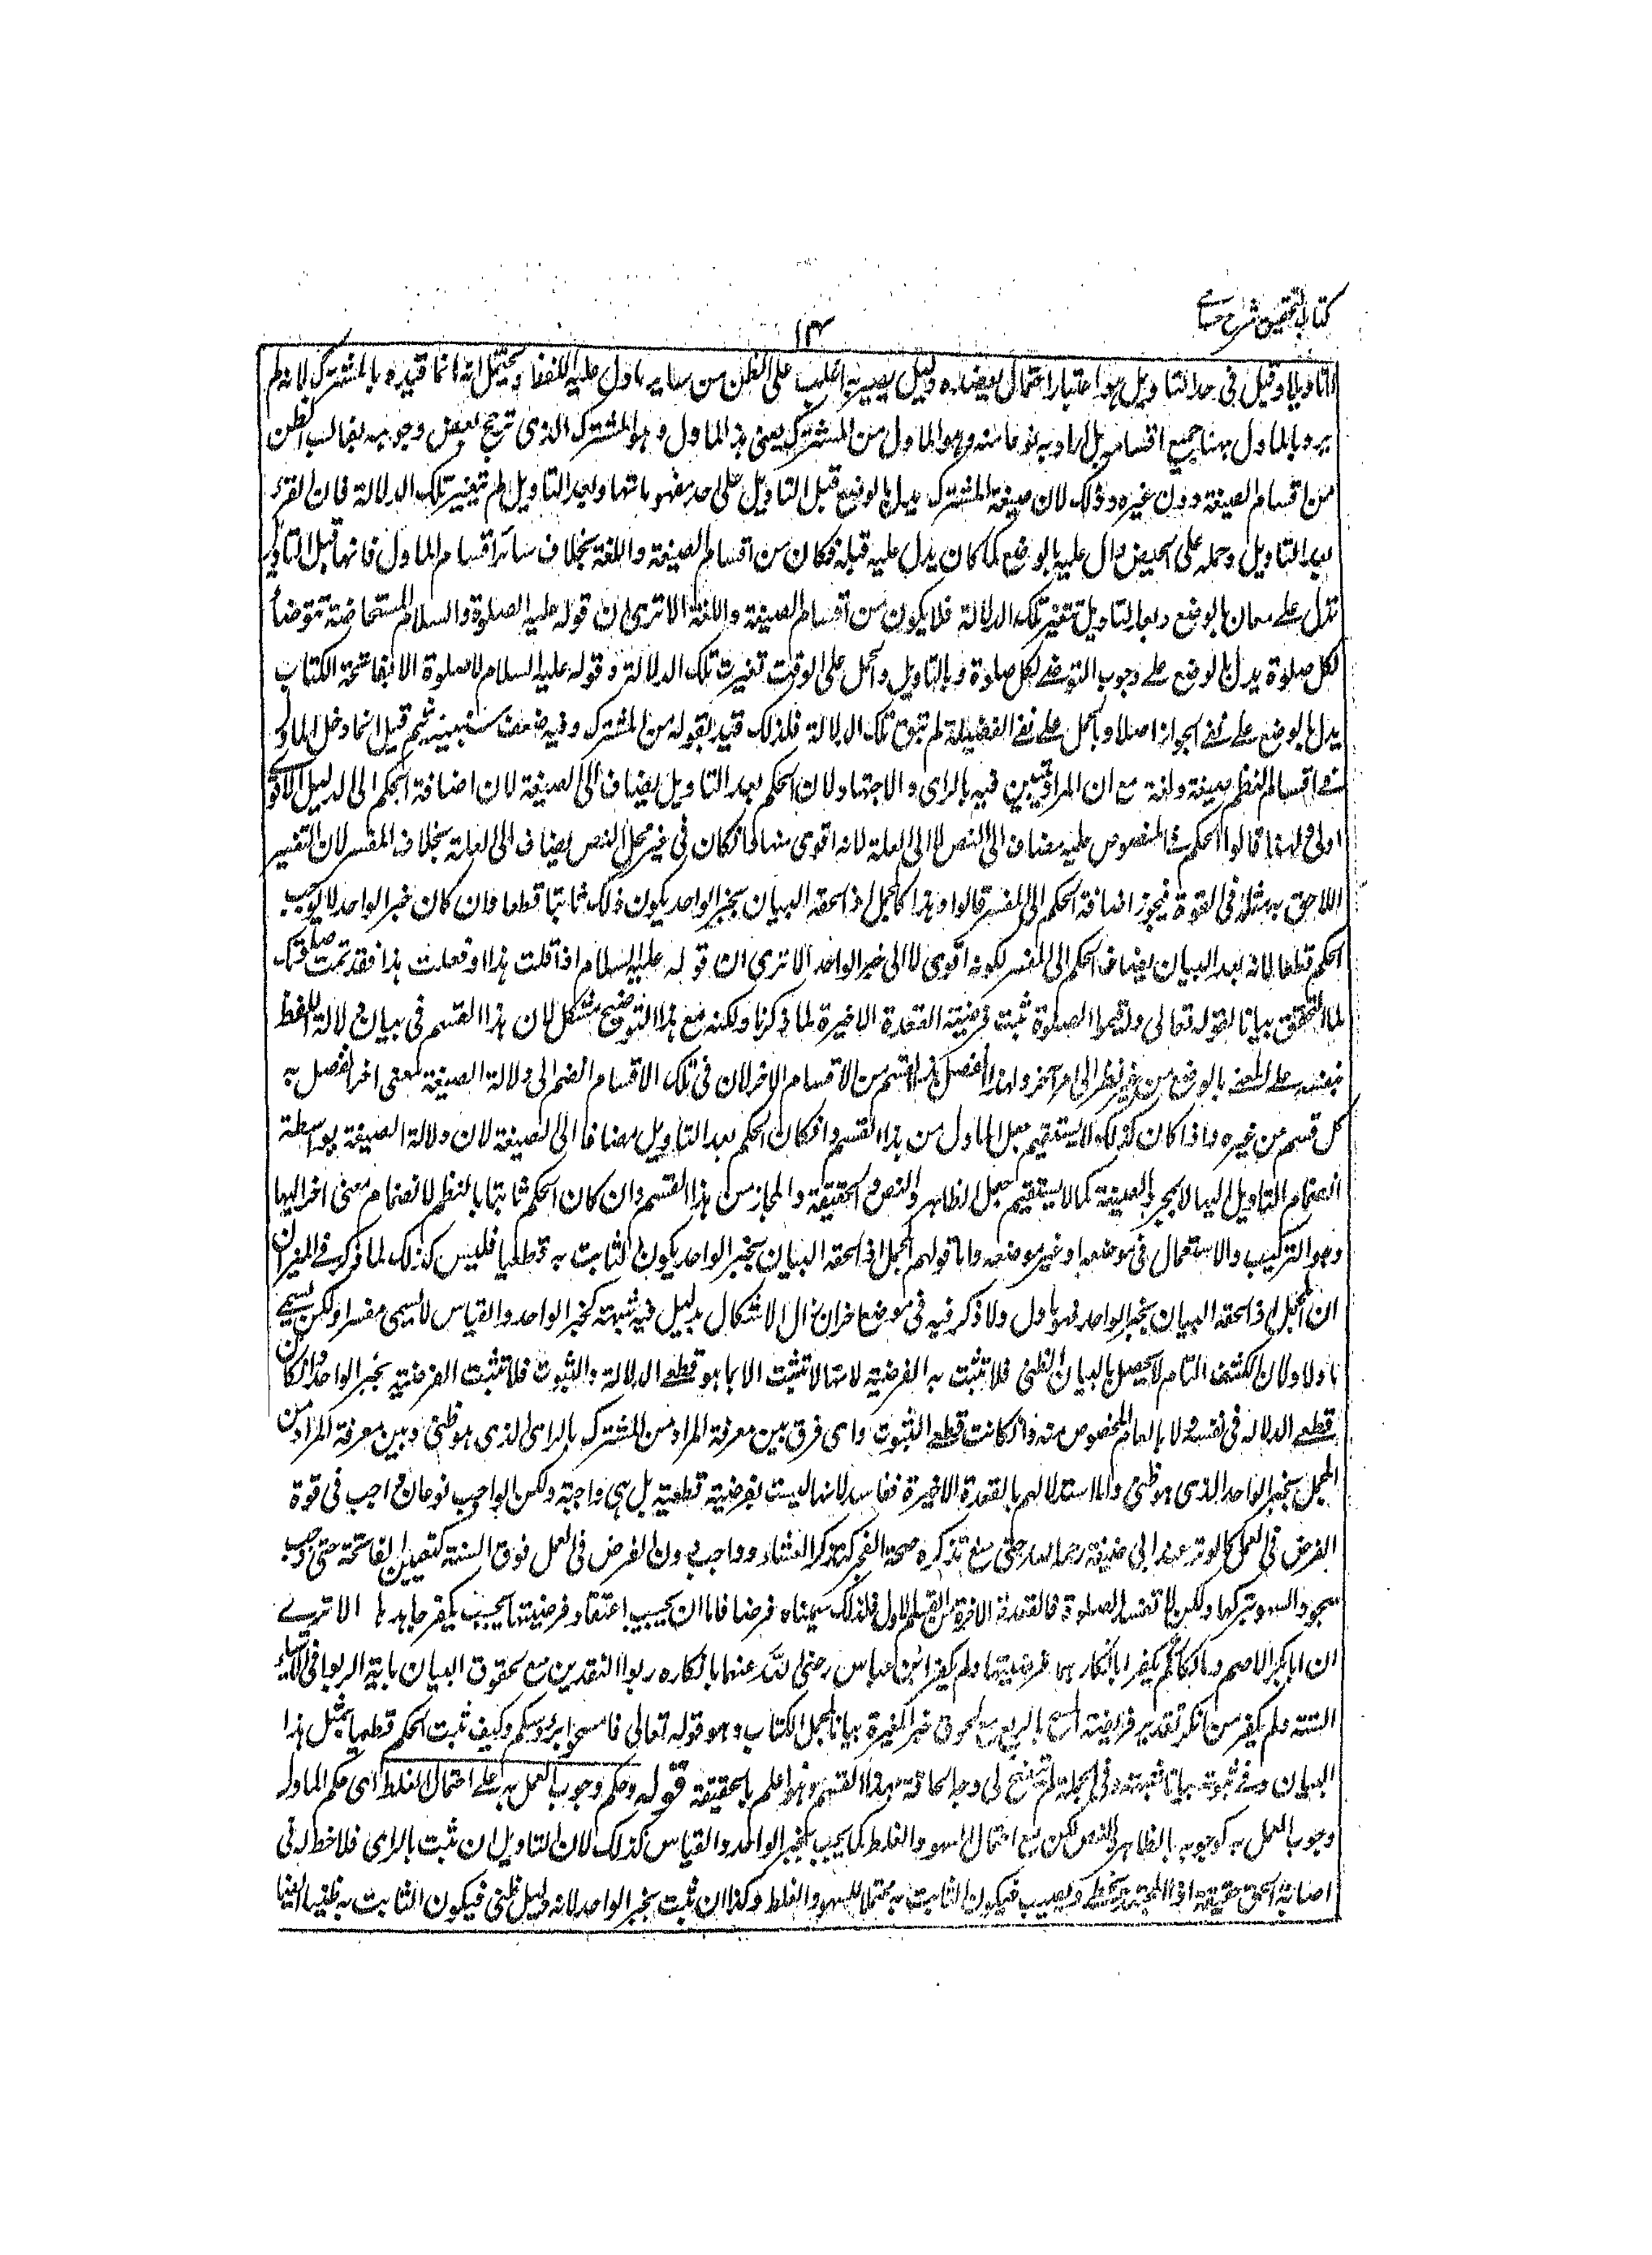 كتاب التحقيق شرح حسامي
١٣
اتاويلا وقيل فى حد التاويل هو اعتبار احتمال يعضده دليل يصير به اغلب على الظن من سائر ما دل عليه اللفظ ويحتمل انه انما قيده بالمشترك لانه لم
يرد بالماول ههنا جميع اقسامه بل اراد به نوعا منه وهو الماول من المشترك يعنى هذا الماول وهو المشترك الذى ترجح بعض وجوهه بغالب الظن
من اقسام الصيغة دون غيره وذلك لان صيغة المشترك يدل بالوضع قبل التاويل على احد مفهوماتها وبعد التاويل لم تتغير تلك الدلالة فان القرء
بعد التاويل وحمله على الحيض دال عليه بالوضع كما كان يدل عليه قبله فكان من اقسام الصيغة واللغة بخلاف سائر اقسام الماول فانها قبل التاويل
تدل على معان بالوضع وبعد التاويل تتغير تلك الدلالة فلا يكون من اقسام الصيغة واللغة الا ترى ان قوله عليه الصلوة والسلام المستحاضة تتوضأ
لكل صلوة يدل بالوضع على وجوب التوضئ لكل صلوة وبالتاويل والحمل على الوقت تغيرت تلك الدلالة وقوله عليه السلام لا صلوة الا بفاتحة الكتاب
يدل بالوضع على نفى الجواز اصلا وبالحمل على نفى الفضيلة لم تبق تلك الدلالة فلذلك قيد بقوله من المشترك وفيه ضعف سنبينه ثم قيل انما دخل الماول
فى اقسام النظم صيغة ولغة مع ان المراد تبين فيه بالراى والاجتهاد لان الحكم بعد التاويل يضاف الى الصيغة لان اضافة الحكم الى الدليل الاقوى
اولى ولهذا قالوا الحكم فى المنصوص عليه مضاف الى النص لا الى العلة لانه اقوى منها وان كان فى غير محل النص يضاف الى العلة بخلاف المفسر لان التفسير
اللاحق به مثله فى القوة فيجوز اضافة الحكم الى المفسر قالوا وهذا كالمجمل اذا لحقه البيان بخبر الواحد يكون ذلك ثابتا قطعا وان كان خبر الواحد لا يوجب
الحكم قطعا لانه بعد البيان يضاف الحكم الى المفسر لكونه اقوى لا الى خبر الواحد الا ترى ان قوله عليه السلام اذا قلت هذا او فعلت هذا فقد تمت صلوتك
لما التحق بيانا لقوله تعالى واقيموا الصلوة ثبت فرضية القعدة الاخيرة لما ذكرنا ولكنه مع هذا التوضيح مشكل لان هذا القسم فى بيان دلالة اللفظ
بنفسه على المعنى بالوضع من غير نظر الى امر آخر ولهذا انفصل هذا القسم من الاقسام الاخر لان فى تلك الاقسام انضم الى دلالة الصيغة معنى اخر انفصل به
كل قسم من غيره واذا كان كذلك لا يستقيم جعل الماول من هذا القسم وان كان الحكم بعد التاويل مضافا الى الصيغة لان دلالة الصيغة بواسطة
انضمام التاويل اليها لا بمجرد الصيغة كما لا يستقيم جعل الظاهر والنص والحقيقة والمجاز من هذا القسم وان كان الحكم ثابتا بالنظم لانضمام معنى اخر اليها
وهو التركيب والاستعمال فى موضعه او غير موضعه واما قولهم المجمل اذا لحقه البيان بخبر الواحد يكون الثابت به قطعيا فليس كذلك لما ذكر فى الميزان
ان المجمل اذا لحقه البيان بخبر الواحد فهو ماول ولا ذكر فيه فى موضع اخر ان زال الاشكال بدليل فيه شبهة كخبر الواحد والقياس لا يسمى مفسرا ولكن يسمى
ماولا ولان الكشف التام لا يحصل بالبيان الظنى فلا تثبت به الفرضية لانها لا تثبت الا بما هو قطعى الدلالة والثبوت فلا تثبت الفرضية بخبر الواحد وان كان
قطعى الدلالة فى نفسه ولا بالعام المخصوص منه وان كانت قطعى الثبوت واى فرق بين معرفة المراد من المشترك بالراى الذى هو ظنى وبين معرفة المراد من
المجمل بخبر الواحد الذى هو ظنى واما استدلالهم بالقعدة الاخيرة ففاسد لانها ليست بفرضية قطعية بل هى واجبة ولكن الواجب نوعان واجب فى قوة
الفرض فى العمل كالوتر عند ابى حنيفة رحمه الله حتى منع تذكره صحة الفجر كتذكر العشاء وواجب دون الفرض فى العمل فوق السنة كتعيين الفاتحة حتى وجب
سجود السهو بتركها ولكن لا تفسد الصلوة فالقعدة الاخيرة من القسم الاول فلذلك سميناه فرضا فاما ان يجب اعتقاد فرضيتها بحيث يكفر جاحدها الا ترى
ان ابا بكر الاصم ومالكا لم يكفرا بانكارهما فرضيتها ولم يكفر ابن عباس رضى الله عنهما بانكاره ربوا النقدين مع لحوق البيان باية الربوا فى الاشياء
الستة ولم يكفر من انكر تقدير فرضية المسح بالربع مع لحوق خبر المغيرة بيانا لمجمل الكتاب وهو قوله تعالى فامسحوا برؤسكم وكيف ثبت الحكم قطعيا بمثل هذا
البيان وفى ثبوته بيانا شبهة وفى الجملة لم يتضح لى وجه الحاقه بهذا القسم والله اعلم بالحقيقة قوله وحكمه وجوب العمل به على احتمال الغلط اى حكم الماول
وجوب العمل به كوجوبه بالظاهر والنص لكن مع احتمال السهو والغلط كما يجب بخبر الواحد والقياس كذلك لان التاويل ان ثبت بالراى فلا حظ له فى
اصابة الحق حقيقة اذ المجتهد يخطئ ويصيب فيكون الثابت به محتملا للسهو والغلط وكذا ان ثبت بخبر الواحد لانه دليل ظنى فيكون الثابت به ظنيا ايضا